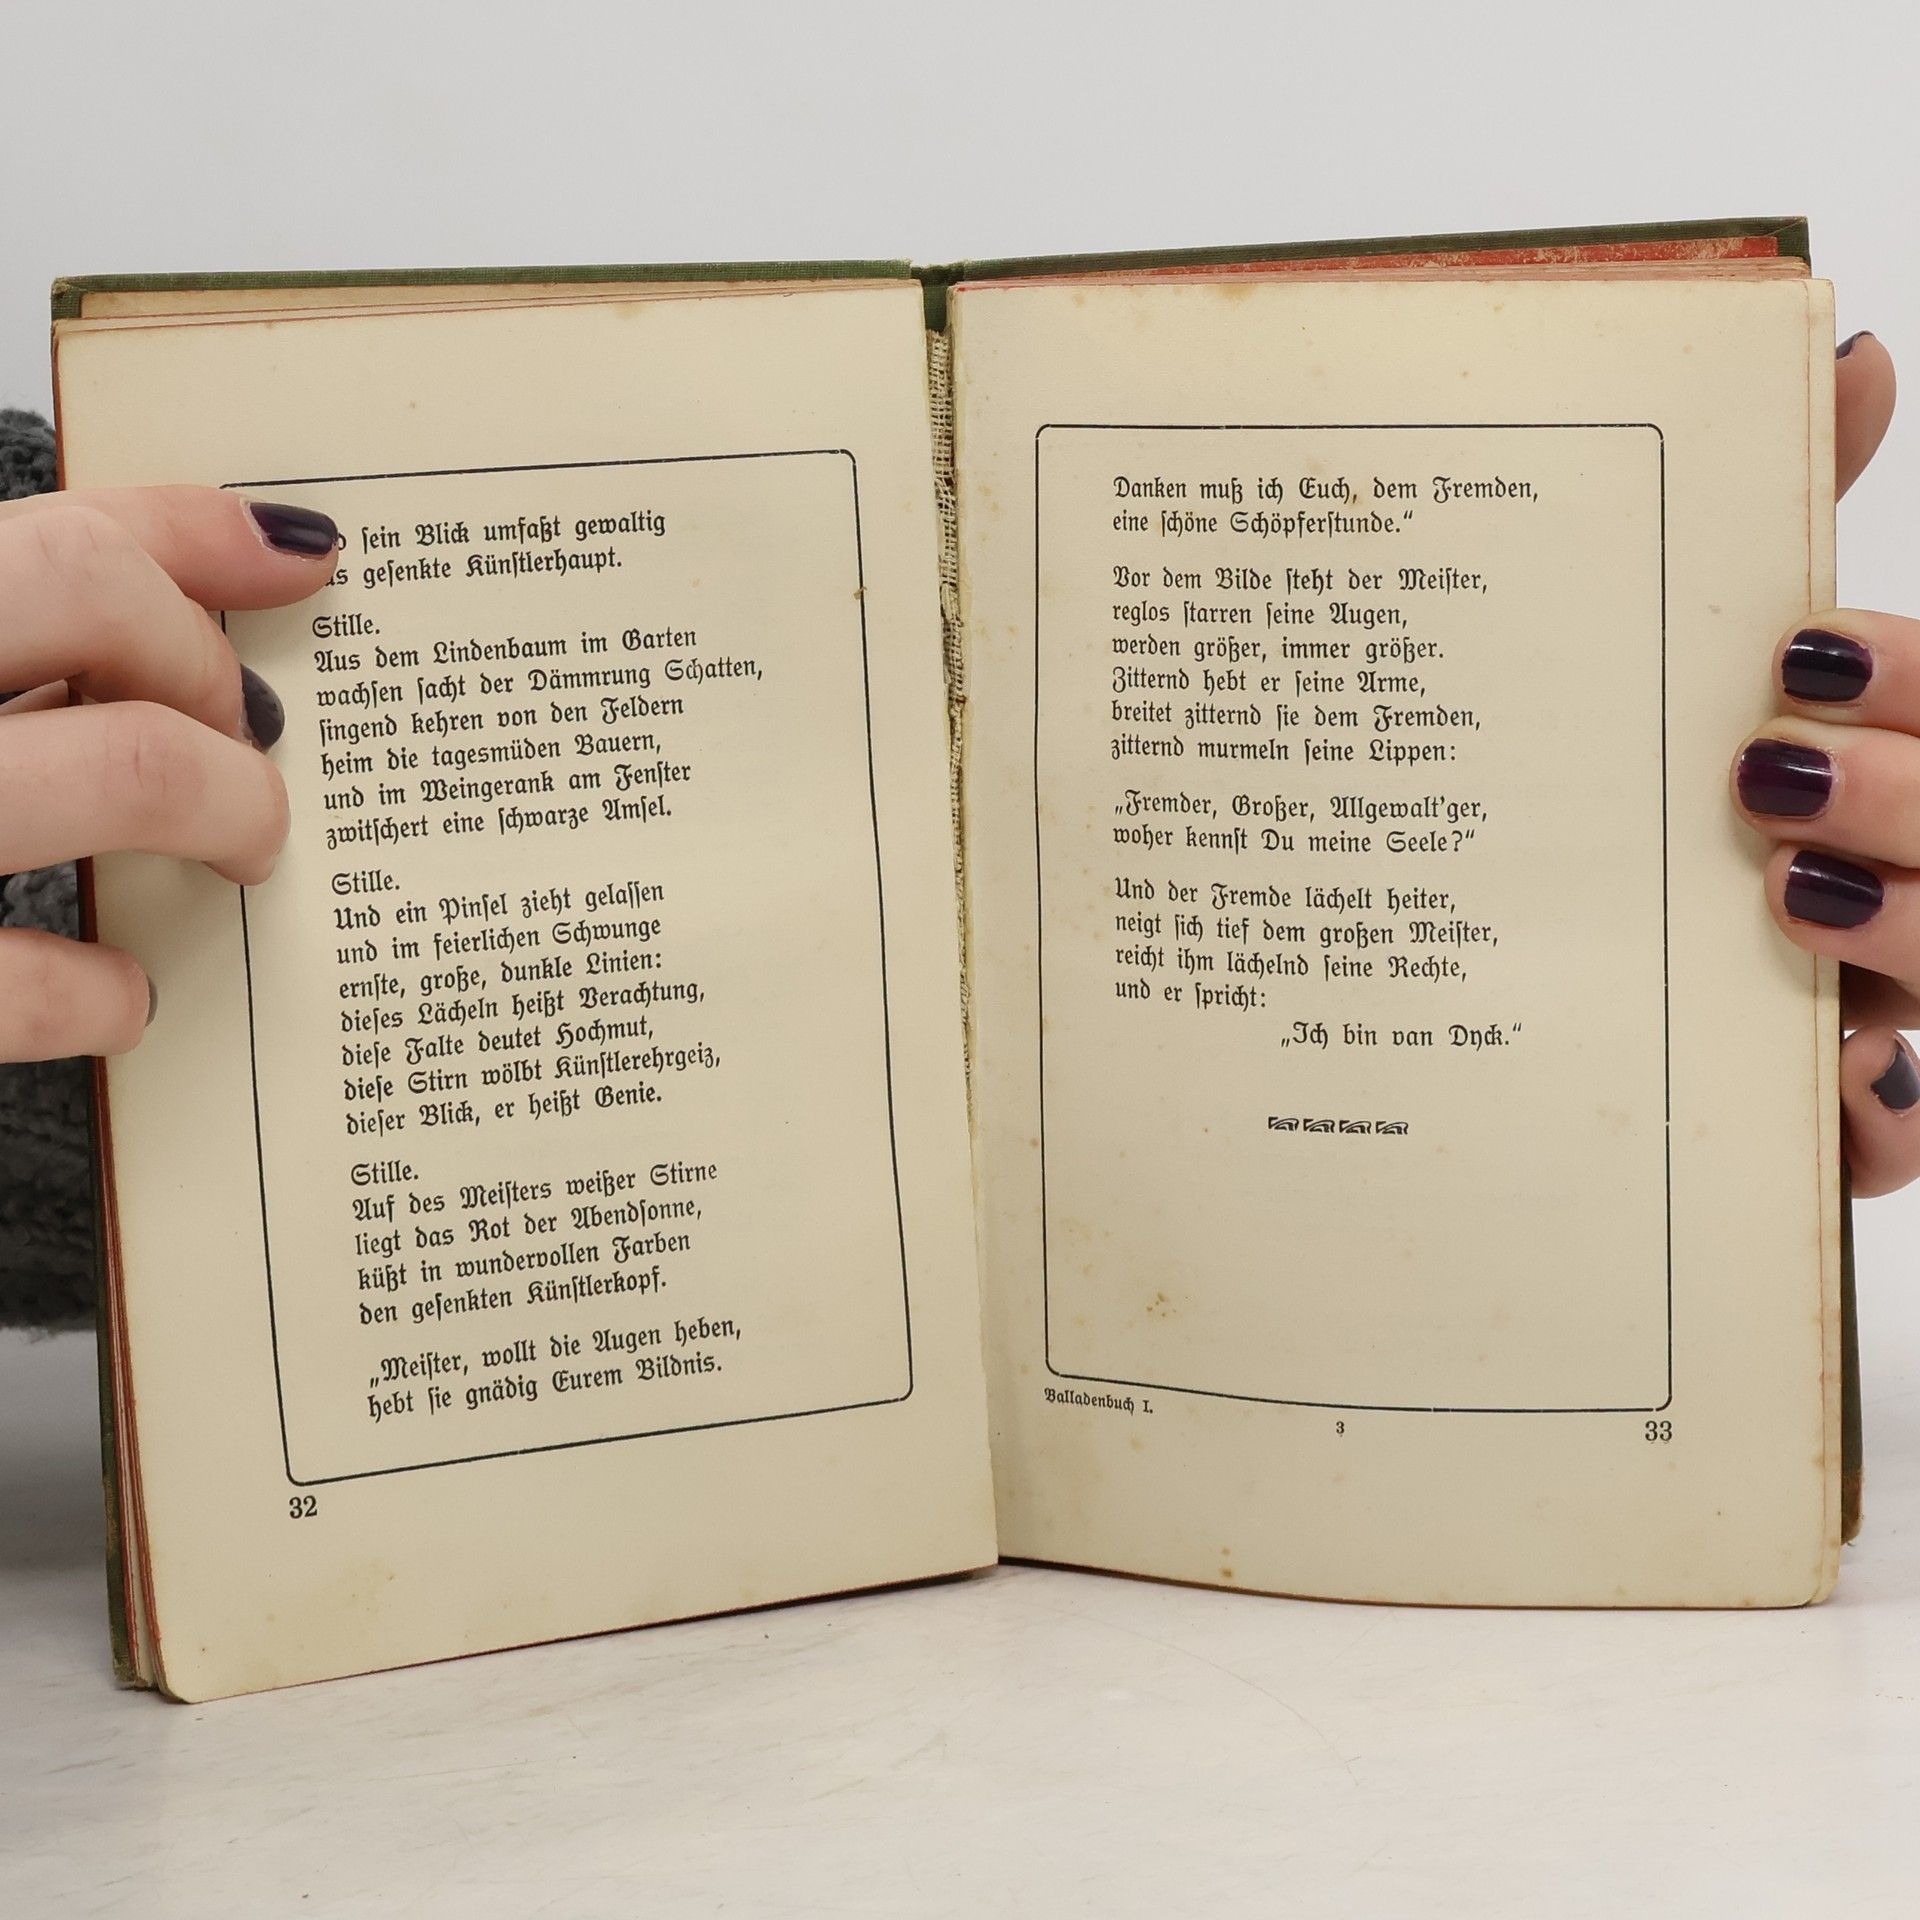 sein Blick umfaßt gewaltig
gesenkte Künstlerhaupt.
Stille.
Aus dem Lindenbaum im Garten
wachsen sacht der Dämmrung Schatten,
singend kehren von den Feldern
heim die tagesmüden Bauern,
und im Weingerank am Fenster
zwitschert eine schwarze Amsel.
Stille.
Und ein Pinsel zieht gelassen
und im feierlichen Schwunge
ernste, große, dunkle Linien:
dieses Lächeln heißt Verachtung,
diese Falte deutet Hochmut,
diese Stirn wölbt Künstlerehrgeiz,
dieser Blick, er heißt Genie.
Stille.
Auf des Meisters weißer Stirne
liegt das Rot der Abendsonne,
küßt in wundervollen Farben
den gesenkten Künstlerkopf.
„Meister, wollt die Augen heben,
hebt sie gnädig Eurem Bildnis.
32
Danken muß ich Euch, dem Fremden,
eine schöne Schöpferstunde.“
Vor dem Bilde steht der Meister,
reglos starren seine Augen,
werden größer, immer größer.
Zitternd hebt er seine Arme,
breitet zitternd sie dem Fremden,
zitternd murmeln seine Lippen:
„Fremder, Großer, Allgewalt'ger,
woher kennst Du meine Seele?“
Und der Fremde lächelt heiter,
neigt sich tief dem großen Meister,
reicht ihm lächelnd seine Rechte,
und er spricht:
„Ich bin van Dyck.“
Balladenbuch I.
3
33